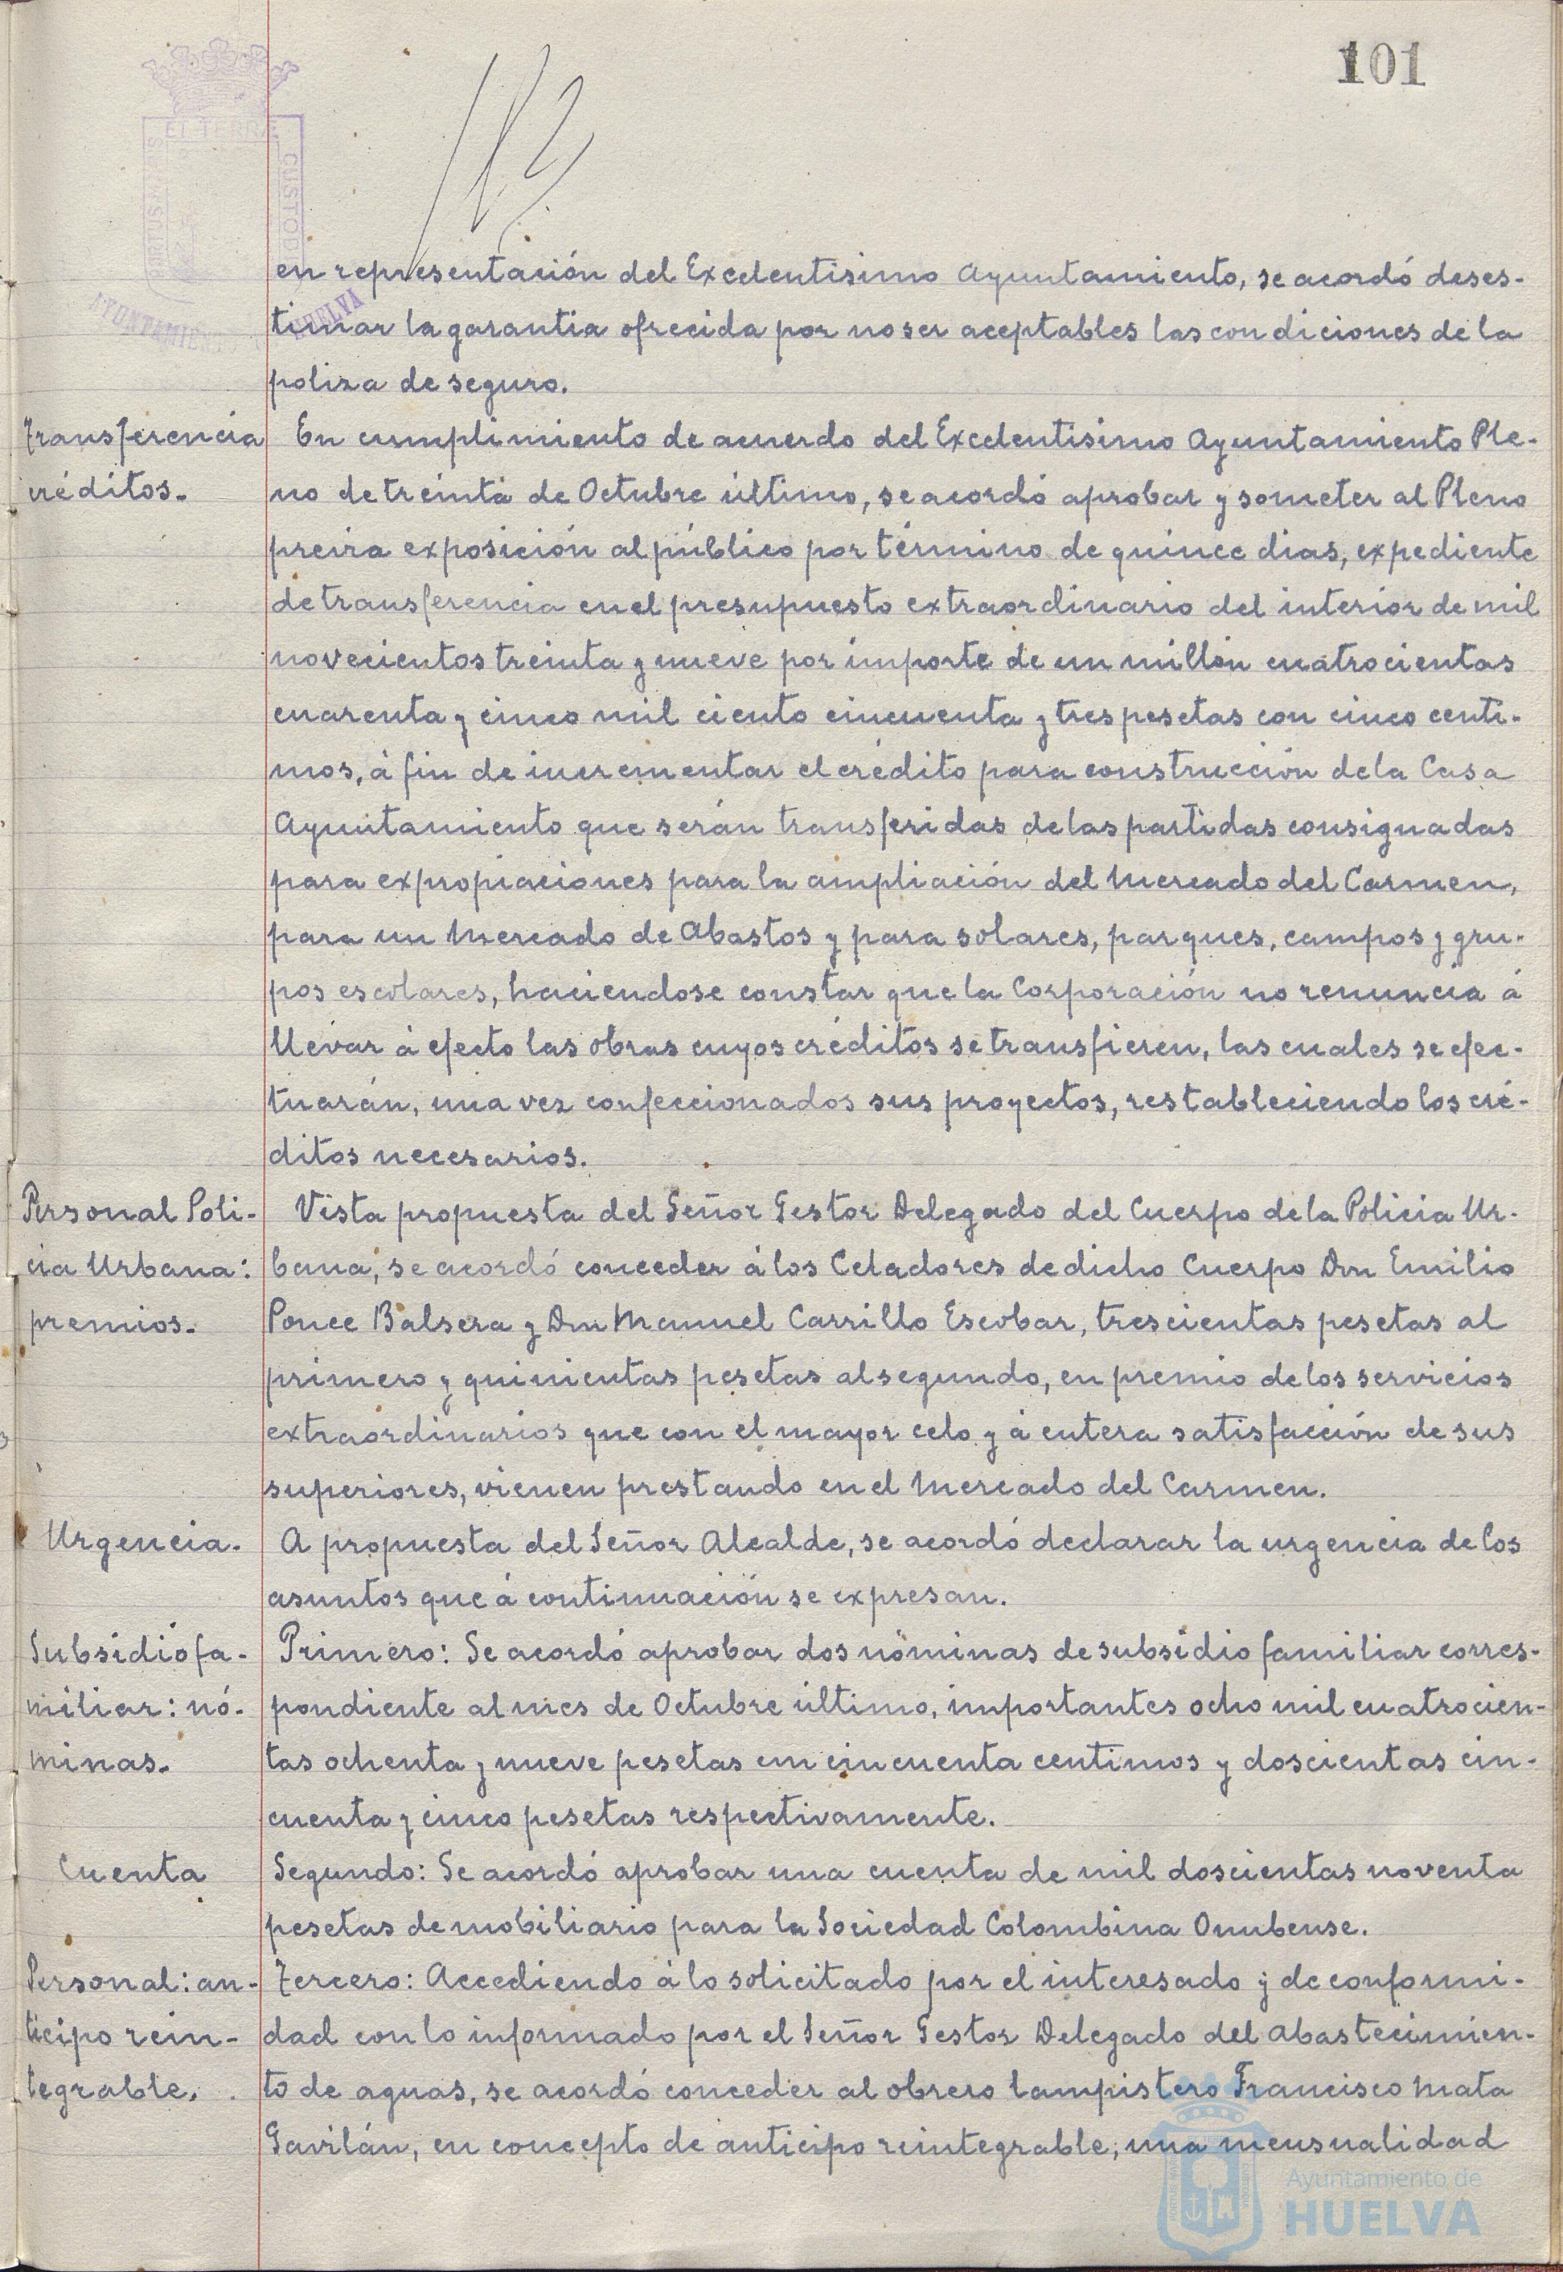 101
EL TERRA
CUSTOD
AYUNTAMIEN
HUELVA
en representación del Excelentisimo Ayuntamiento, se acordó deses-
timar la garantia ofrecida por no ser aceptables las condiciones de la
poliza de seguro.
Transferencia
créditos.
En cumplimiento de acuerdo del Excelentisimo Ayuntamiento Ple-
no de treinta de Octubre último, se acordó aprobar y someter al Pleno
previa exposición al público por término de quince dias, expediente
de transferencia en el presupuesto extraordinario del interior de mil
novecientos treinta y nueve por importe de un millón cuatrocientas
cuarenta y cinco mil ciento cincuenta y tres pesetas con cinco centi-
mos, á fin de incrementar el crédito para construcción de la Casa
Ayuntamiento que serán transferidas de las partidas consignadas
para expropiaciones para la ampliación del Mercado del Carmen,
para un Mercado de Abastos y para solares, parques, campos y gru-
pos escolares, haciendose constar que la Corporación no renuncia á
llevar á efecto las obras cuyos créditos se transfieren, las cuales se efec-
tuarán, una vez confeccionados sus proyectos, restableciendo los cré-
ditos necesarios.
Personal Poli-
cia Urbana:
premios.
Vista propuesta del Señor Gestor Delegado del Cuerpo de la Policia Ur-
bana, se acordó conceder á los Celadores de dicho Cuerpo Don Emilio
Ponce Balsera y Don Manuel Carrillo Escobar, trescientas pesetas al
primero y quinientas pesetas al segundo, en premio de los servicios
extraordinarios que con el mayor celo y á entera satisfacción de sus
superiores, vienen prestando en el Mercado del Carmen.
Urgencia.
A propuesta del Señor Alcalde, se acordó declarar la urgencia de los
asuntos que á continuación se expresan.
Subsidio fa-
miliar: nó-
minas.
Primero: Se acordó aprobar dos nóminas de subsidio familiar corres-
pondiente al mes de Octubre último, importantes ocho mil cuatrocien-
tas ochenta y nueve pesetas con cincuenta centimos y doscientas cin-
cuenta y cinco pesetas respectivamente.
Cuenta
Segundo: Se acordó aprobar una cuenta de mil doscientas noventa
pesetas de mobiliario para la Sociedad Colombina Onubense.
Personal: an-
ticipo rein-
tegrable.
Tercero: Accediendo á lo solicitado por el interesado y de conformi-
dad con lo informado por el Señor Gestor Delegado del Abastecimien-
to de aguas, se acordó conceder al obrero lampistero Francisco Mata
Gavilán, en concepto de anticipo reintegrable, una mensualidad
Ayuntamiento de
HUELVA